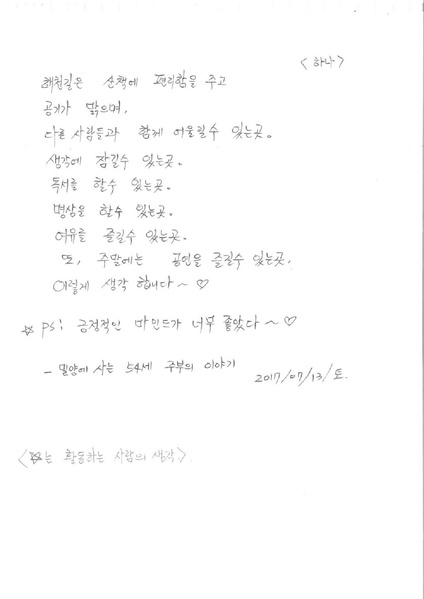 <하나>
해천길은 산책에 편리함을 주고
공기가 맑으며,
다른 사람들과 함께 어울릴수 있는곳.
생각에 잠길수 있는곳.
독서를 할수 있는곳.
명상을 할수 있는곳.
여유를 즐길수 있는곳.
또, 주말에는 공연을 즐길수 있는곳,
이렇게 생각 합니다~♡
☆ PS; 긍정적인 마인드가 너무 좋았다~♡
- 밀양에 사는 54세 주부의 이야기
2017/07/13/토.
<☆는 활동하는 사람의 생각>